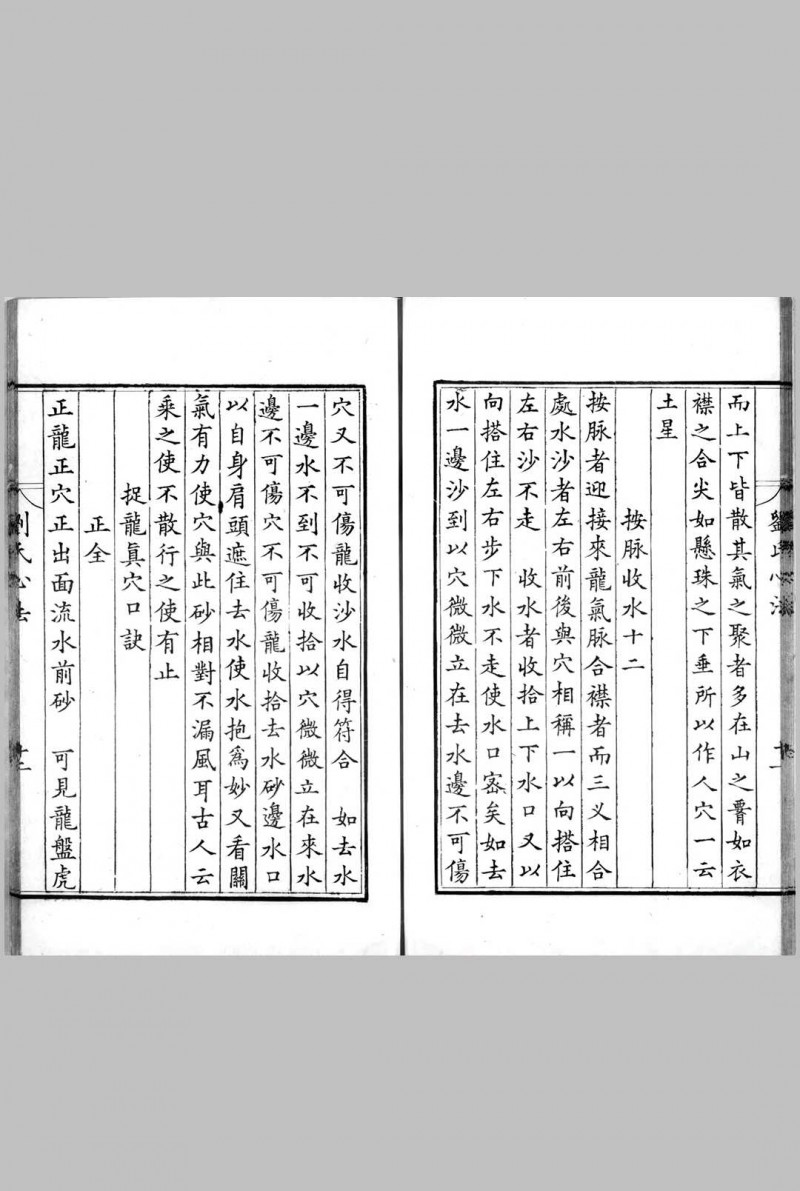 而上下皆散其氣之聚者多在山之䯨如衣
襟之合尖如懸珠之下垂所以作人穴一云
土星
按脉收水十二
按脉者迎接來龍氣脉合襟者而三义相合
處水沙者左右前後與穴相稱一以向搭住
左右沙不走　收水者收拾上下水口又以
向搭住左右步下水不走使水口宻矣如去
水一邊沙到以穴微微立在去水邊不可傷
穴又不可傷龍收沙水自得符合　如去水
一邊水不到不可收拾以穴微微立在來水
邊不可傷穴不可傷龍收拾去水砂邊水口
以自身肩頭遮住去水使水抱爲妙又看關
氣有力使穴與此砂相對不漏風耳古人云
乘之使不散行之使有止
捉龍眞穴口訣
正全
正龍正穴正出面流水前砂　可見龍盤虎
劉氏心法